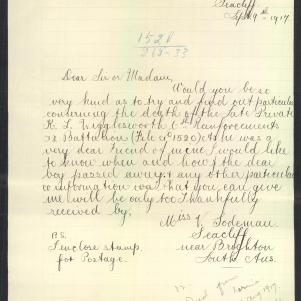 Seacliff
Sept 9th 1917
1528
Dear Sir or Madame,
Would you be so
very kind as to try and find out particulars
concerning the death of the late Private
K. L. Wigglesworth 6th Reinforcements
32 Battalion (No 1520) As he was a
very dear Friend of mine I would like
to know when and how the dear
boy passed away & any other particulars
or information was that you can give
me will be only too thankfully
received by,
Miss V. Todeman
Seacliff
near Brighton
South Aus.
P.S.
I enclose stamp
for Postage.